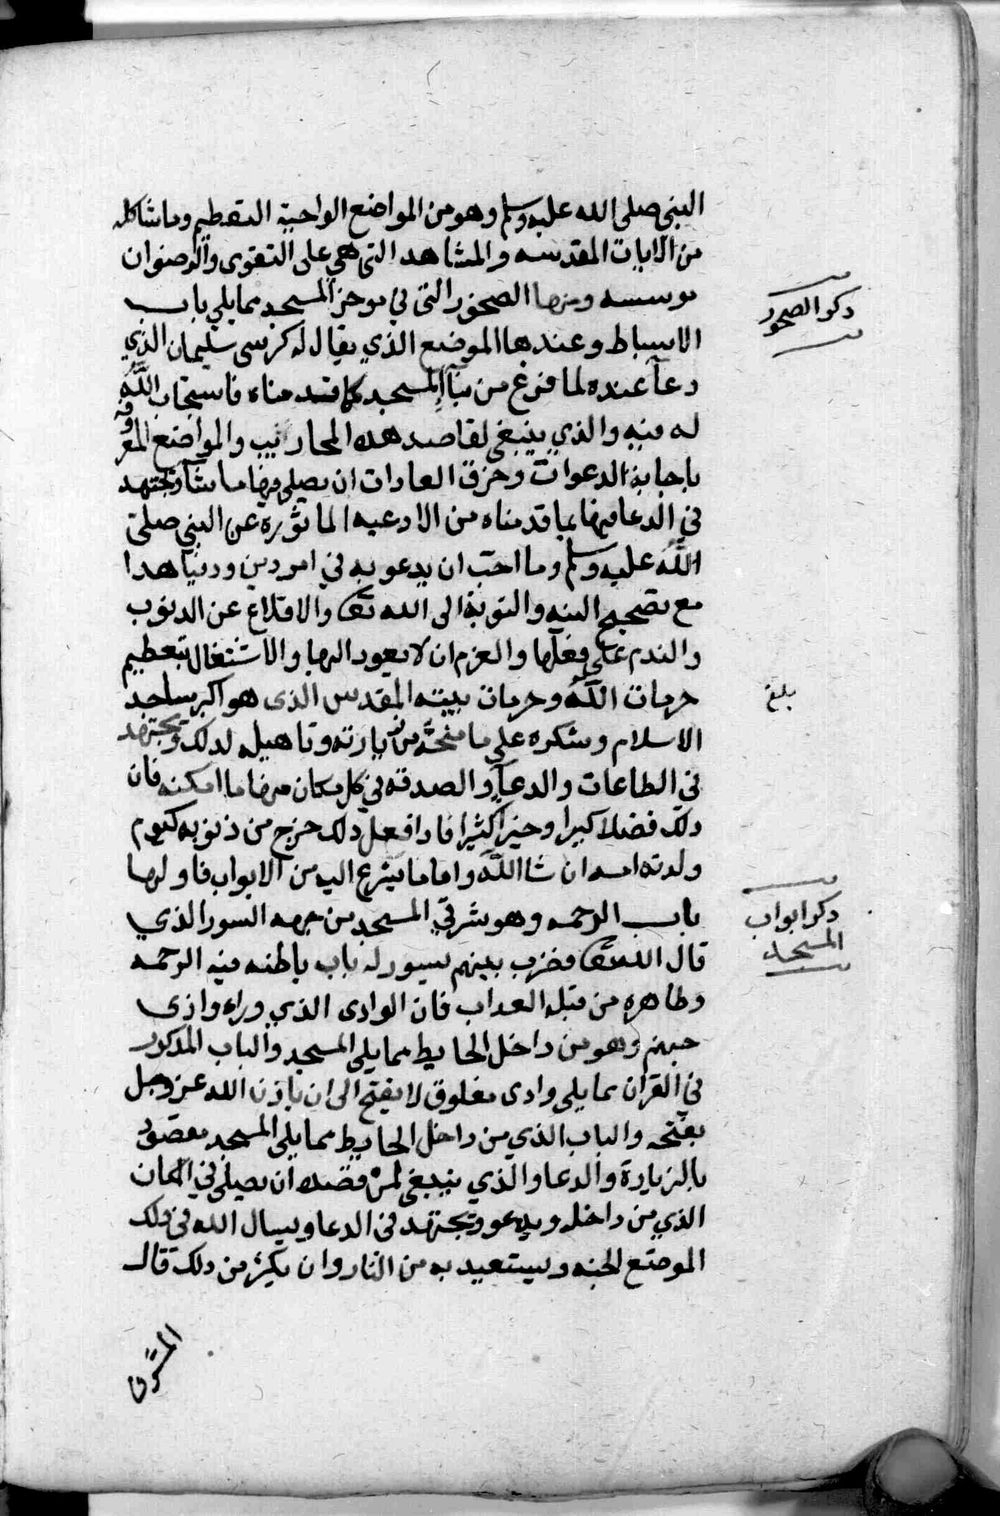 النبي صلى الله عليه وسلم وهو من المواضع الواجبة التعظيم وما شاكله
من الآيات المقدسه والمشاهد التي هي على التقوى والرضوان
موسسه ومنها الصخور التي في موخر المسجد مما يلي باب
ذكر الصخور
الاسباط وعندها الموضع الذي يقال له كرسى سليمان الذي
دعا عنده لما فرغ من بنآ المسجد كما قدمناه فاستجاب اللّٰه
له فيه والذي ينبغي لقاصد هذه المحاريب والمواضع المعروفه
باجابة الدعوات وخرق العادات ان يصلي فيها ما شآ ويجتهد
في الدعا فيها بما قدمناه من الادعيه الماثوره عن النبي صلى
اللّٰه عليه وسلم وما احب ان يدعو به في امر دين ودنيا هذا
مع تصحيح النيه والتوبة الى الله تعا والاقلاع عن الذنوب
والندم على فعلها والعزم ان لا يعود اليها والاشتغال بتعظيم
حرمات اللّٰه وحرمات بيته المقدس الذى هو اكبر مساجد
بلغ
الاسلام وشكره على ما منحه من زيارته وتاهيله لذلك ويجتهد
في الطاعات والدعآ والصدقه في كل مكان منها ما امكنه فان
ذلك فضلا كبيرا وخيرا كثيرا فاذا فعل ذلك خرج من ذنوبه كيوم
ولدته امه ان شا اللّٰه واما ما يشرع اليه من الابواب فاولها
باب الرحمه وهو شرقي المسجد من جهه السور الذي
ذكر ابواب
المسجد
قال الله تعا فضرب بينهم بسور له باب باطنه فيه الرحمه
وظاهره من قبله العذاب فان الوادى الذي وراه وادى
جهنم وهو من داخل الحايط مما يلي المسجد والباب المذكور
في القران مما يلي وادى مغلوق لا يفتح الى ان ياذن الله عز وجل
بفتحه والباب الذي من داخل الحايط مما يلي المسجد مقصود
بالزيارة والدعا والذي ينبغي لمن قصده ان يصلي في المكان
الذي من داخله ويدعو ويجتهد في الدعا ويسال الله في ذلك
الموضع الجنه ويستعيذ به من النار وان يكثر من ذلك قال
المشرف